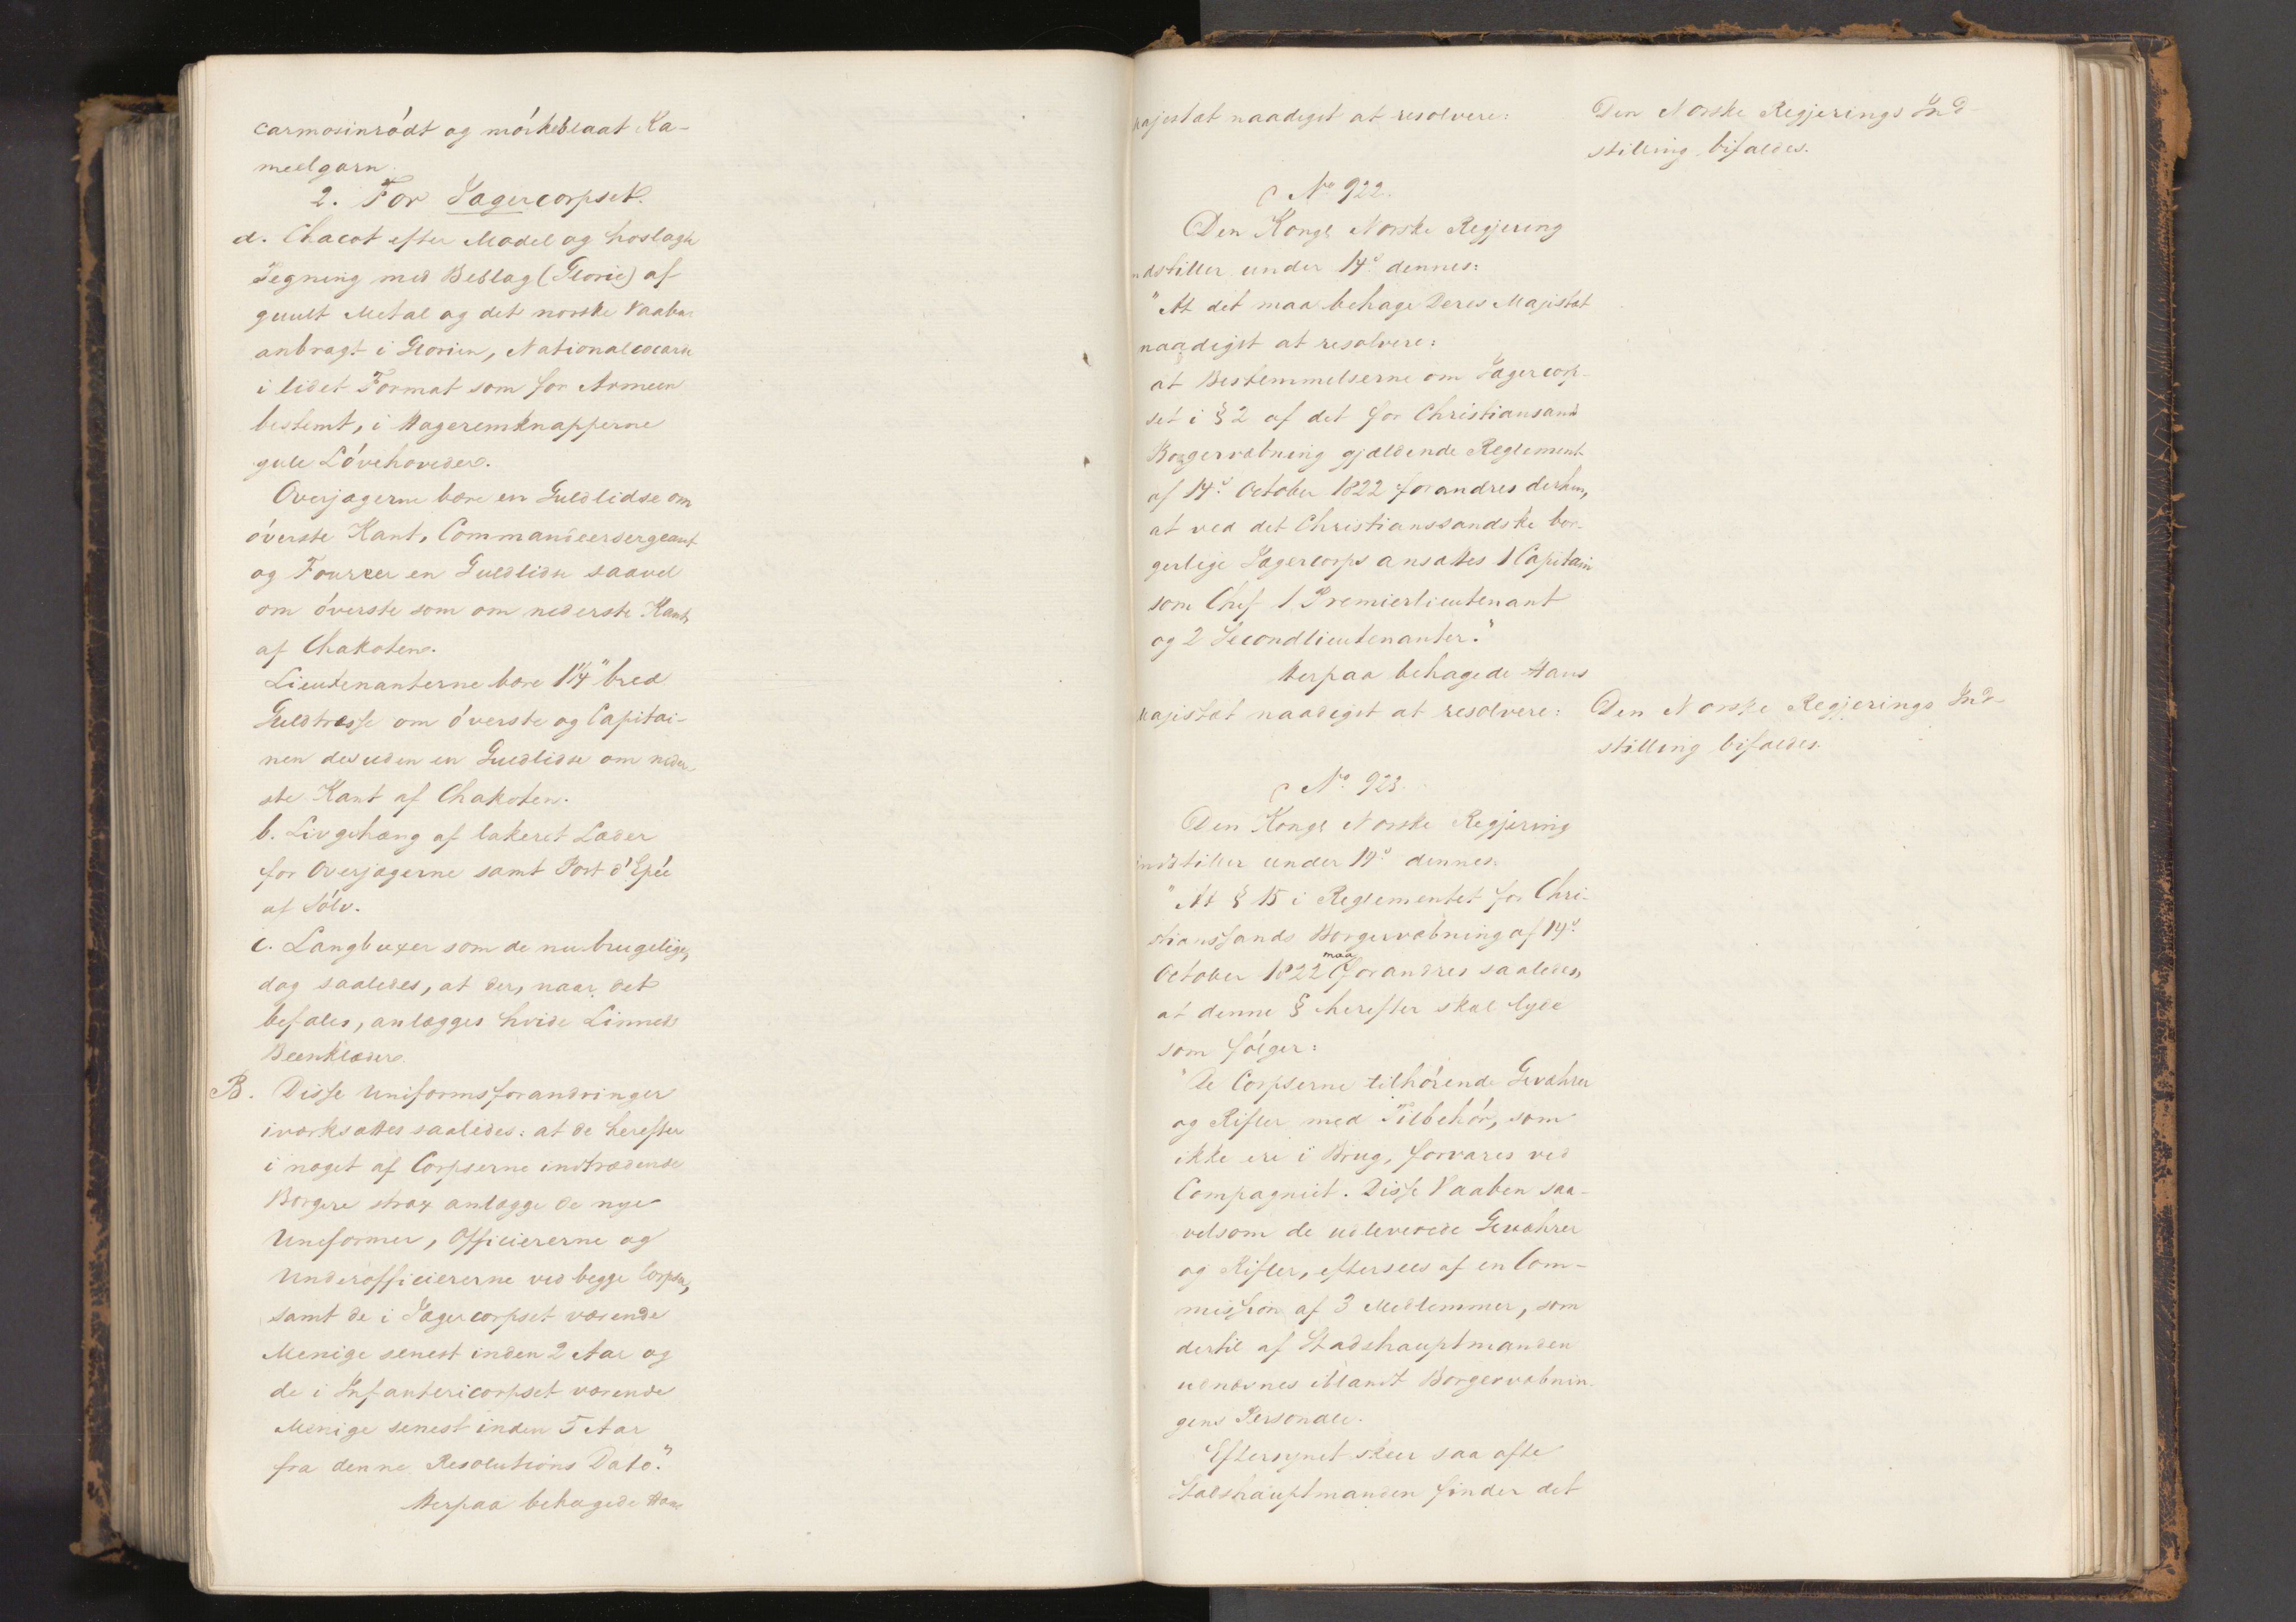 carmosinrödt og mörkeblaat Ka-
meelgarn.
2. For Jagercorpset.
a. Chacot efter Model og hoslagte
Tegning med Beslag (Glorie) af
guult Metal og det norske Vaaben
anbragt i Glorien, Nationalcocarde
i lidet Format som for Armeen
bestemt, i Hageremknapperne
gule Lövehoveder.
Overjagerne bære en Guldlidse om
överste Kant, Commandeersergeant
og Foureer en Guldlidse saavel
om överste som om nederste Kant
af Chakoten.
Lieutenanterne bære 1 1/4" bred
Guldtresse om överste og Capitai-
nen desuden en Guldlidse om neder-
ste Kant af Chakoten.
b. Livgehæng af lakeret Læder
for Overjagerne samt Port d'Epée
af Sölv.
c. Langbuxer som de nu brugelige,
dog saaledes, at der, naar det
befales, anlægges hvide Linneds
Beenklæder.
B. Disse Uniformsforandringer
iværksættes saaledes: at de herefter
i noget af Corpserne indtrædende
Borgere strax anlægge de nye
Uniformer, Officiererne og
Underofficiererne ved begge Corpser,
samt de i Jagercorpset værende
Menige senest inden 2 Aar og
de i Infantericorpset værende
Menige senest inden 5 Aar
fra denne Resolutions Dato."
Herpaa behagede Hans
Majestæt naadigst at resolvere:
Den Norske Regjerings Ind-
stilling bifaldes.
No 922.
Den Kongl Norske Regjering
indstiller under 14d dennes:
"At det maa behage Deres Majestæt
naadigst at resolvere:
at Bestemmelserne om Jagercorp-
set i § 2 af det for Christiansands
Borgervæbning gjældende Reglement
af 14d October 1822 forandres derhen,
at ved det Christianssandske bor-
gerlige Jagercorps ansættes 1 Capitain
som Chef 1 Premierlieutenant
og 2 Secondlieutenanter."
Herpaa behagede Hans
Majestæt naadigst at resolvere:
Den Norske Regjerings Ind-
stilling bifaldes.
No 923.
Den Kongl Norske Regjering
indstiller under 19d dennes:
"At § 15 i Reglementet for Chri-
stianssands Borgervæbning af 14d
October 1822 maa forandres saaledes,
at denne § herefter skal lyde
som fölger:
"De Corpserne tilhörende Geværhrer
og Rifler med Tilbehör, som
ikke ere i Brug, forvares ved
Compagniet. Disse Vaaben saa-
velsom de udleverede Gewæhrer
og Rifler, eftersees af en Com-
mission af 3 Medlemmer, som
dertil af Stadshauptmanden
udnævnes iblandt Borgervæbnin-
gens Personale.
Eftersynet skeer saa ofte
Stadshauptmanden finder det